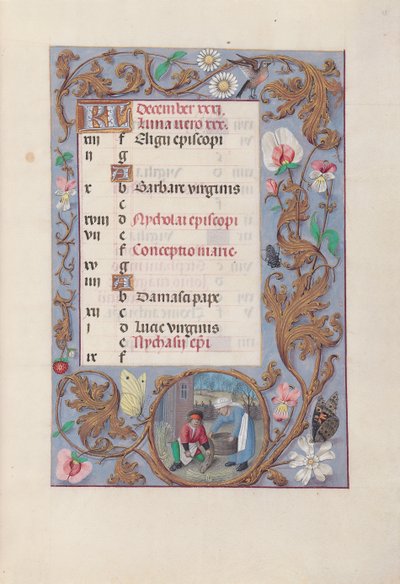 KL December xxxi.
Luna vero xxx.
xiii f Eligii episcopi
ii g
A
x b Barbare virginis
c
xviii d Nycholai episcopi
vii e
f Conceptio marie
xv g
iiii A
b Damasci pape
xii c
i d Lucie virginis
e Nychasii epi
ix f